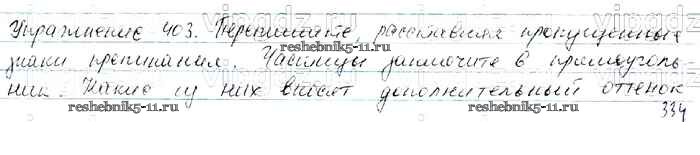 Упражнение 403. Перепишите, расставляя пропущенные
знаки препинания. Частицы заключите в прямоуголь
ник. Какие из них вносят дополнительный оттенок
334
vipgdz.ru
reshebnik5-11.ru
reshebnik5-11.ru
reshebnik5-11.ru